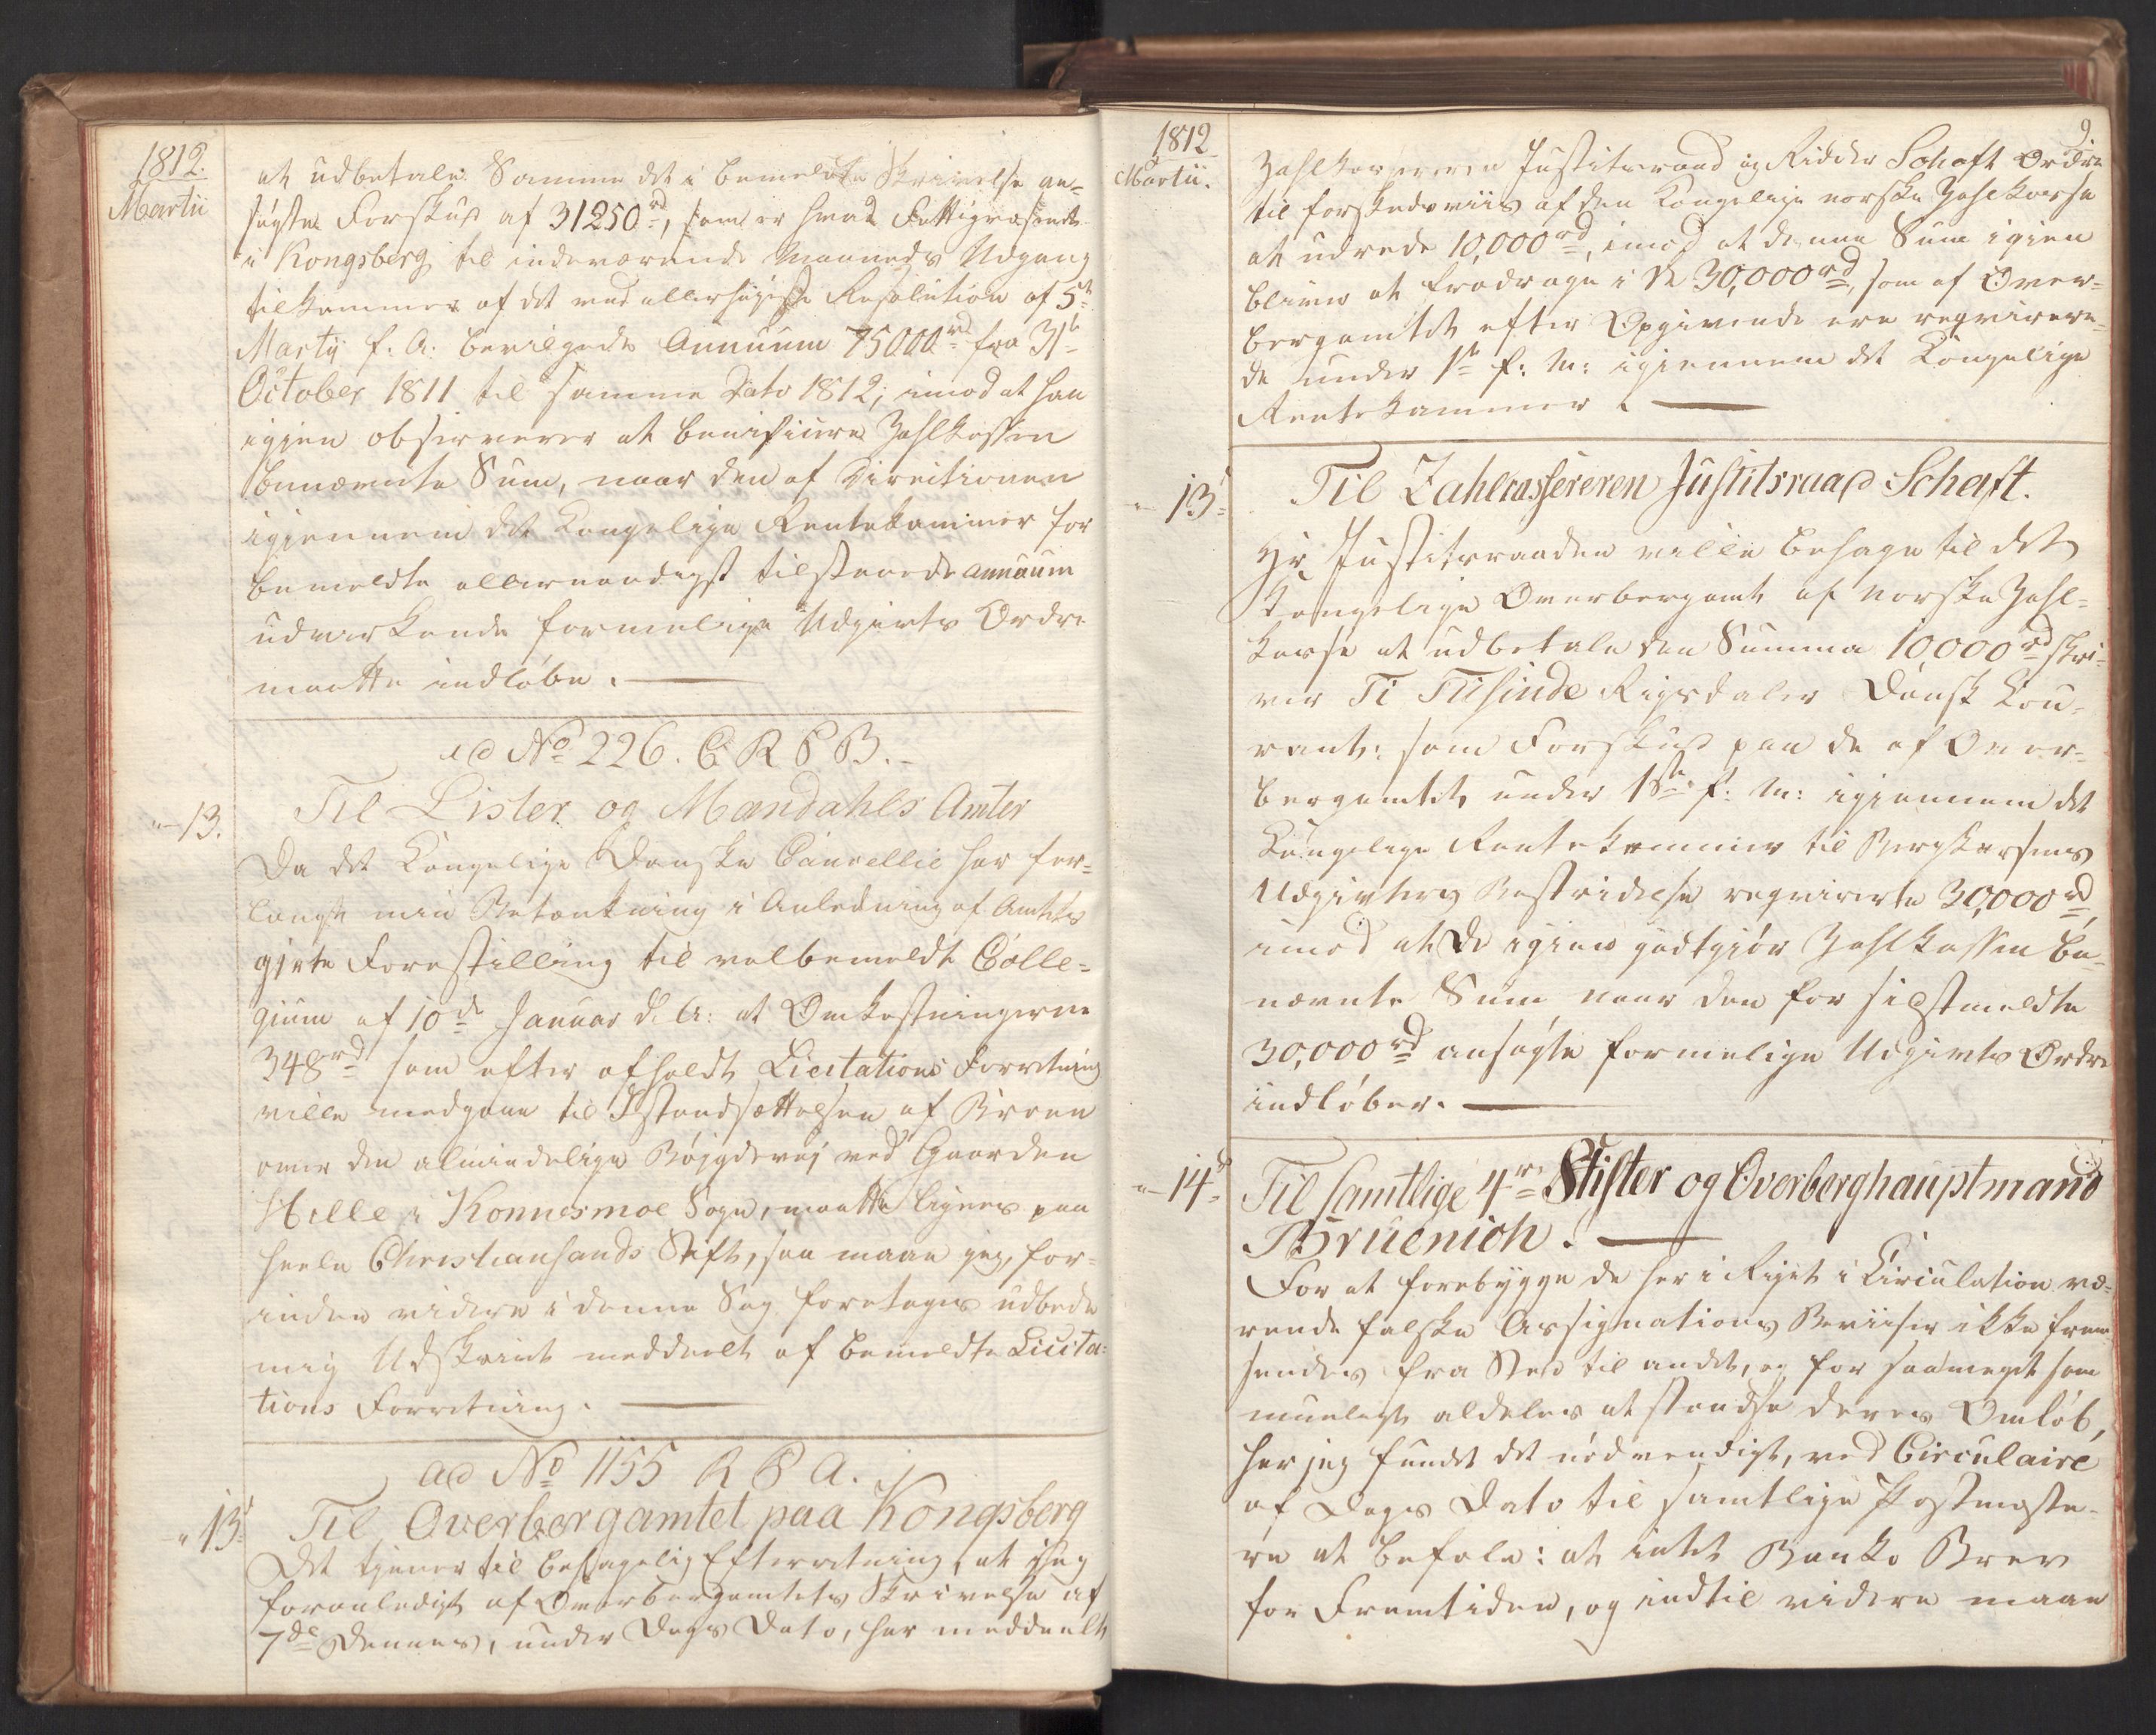 1812.
Martii
at udbetale Samme det i bemeldte Skrivelse an-
søgte Forskud af 31250 rd, som er hvad Fattigvæsenet
i Kongsberg til indeværende Maaneds Udgang
tilkommer af det ved allerhøieste Resolution af 5te
Martij f. A. bevilgede Annuum 75000 rd fra 31te
October 1811 til samme Dato 1812; imod at han
igjen observerer at Zahlkassen
benævnte Sum, naar den af Directionen
igjennem det Kongelige Rentekammer for
bemeldte allernaadigst tilstaaede annuum
udvirkende formelige Udgivts Ordre
maatte indløbe.
ad No 226. C R P B.
"-13.
Til Lister og Mandahls Amter
Da det Kongelige Danske Cancellie har for-
langt min Betænkning i Anledning af Amtets
gjorte Forestilling til velbemeldte Colle-
gium af 10de Januar d. A: at Omkostningerne
348 rd som efter afholdt Licitations Forretning
ville medgaae til Istandsættelsen af Broen
over den almindelige Bøjgdevej ved Gaarden
Hille i Konnesmoe Sogn, maatte lignes paa
heele Christiansands Stift, saa maae jeg, for-
inden videre i denne Sag foretages udbede
mig Udskrivt meddeelt af bemeldte Licita-
tions Forretning.
ad No 1155 R P A.
"13d
Til Overbergamtet paa Kongsberg
Det tjener til behagelig Efterretning, at jeg
foranlediget af Overbergamtets Skrivelse af
7de Dennes, under Dags Dato, har meddeelt
9.
1812
Martii.
Zahlkasereren Justitsraad og Ridder Schaft Ordre
til forskudsviis af den Kongelige norske Zahlkasse
at udrede 10,000 rd, imod at denne Sum igien
bliver at fradrage i de 30,000 rd, som af Over-
bergamtet efter Opgivende ere reqvirere-
de under 1te f. M: igiennem det Kongelige
Rentekammer.
"-13d
Til Zahlcassereren Justitsraad Schaft.
Hr Justitsraaden ville behage til det
Kongelige Overbergamt af Norske Zahl-
kasse at udbetale den Summa 10,000 rd skri-
ver Ti Tusinde Rigsdaler Dansk Cou-
rant: som Forskud paa de af Over-
bergamtet under 1ste f. M: igiennem det
Kongelige Rentekammer til Bergkassens
Udgivters Bestridelse reqvirerte 30,000 rd,
imod at De igien godtgiør Zahlkassen be-
nævnte Sum naar den for sidstmeldte
30,000 rd ansøgte formelige Udgivts Ordre
indløber.
"-14d
Til samtlige 4re Stifter og Overberghauptmand
Brüenich.
For at forebygge de her i Riget i Circulation væ-
rende falske Assignations Beviiser ikke frem-
sendes fra Sted til andet, og for saameget som
mueligt aldeles at standse deres Omløb,
har jeg fundet det nødvendigt, ved Circulaire
af Dags Dato til samtlige Postmeste-
re at befale: at intet Banko Brev
for Fremtiden, og indtil videre maae